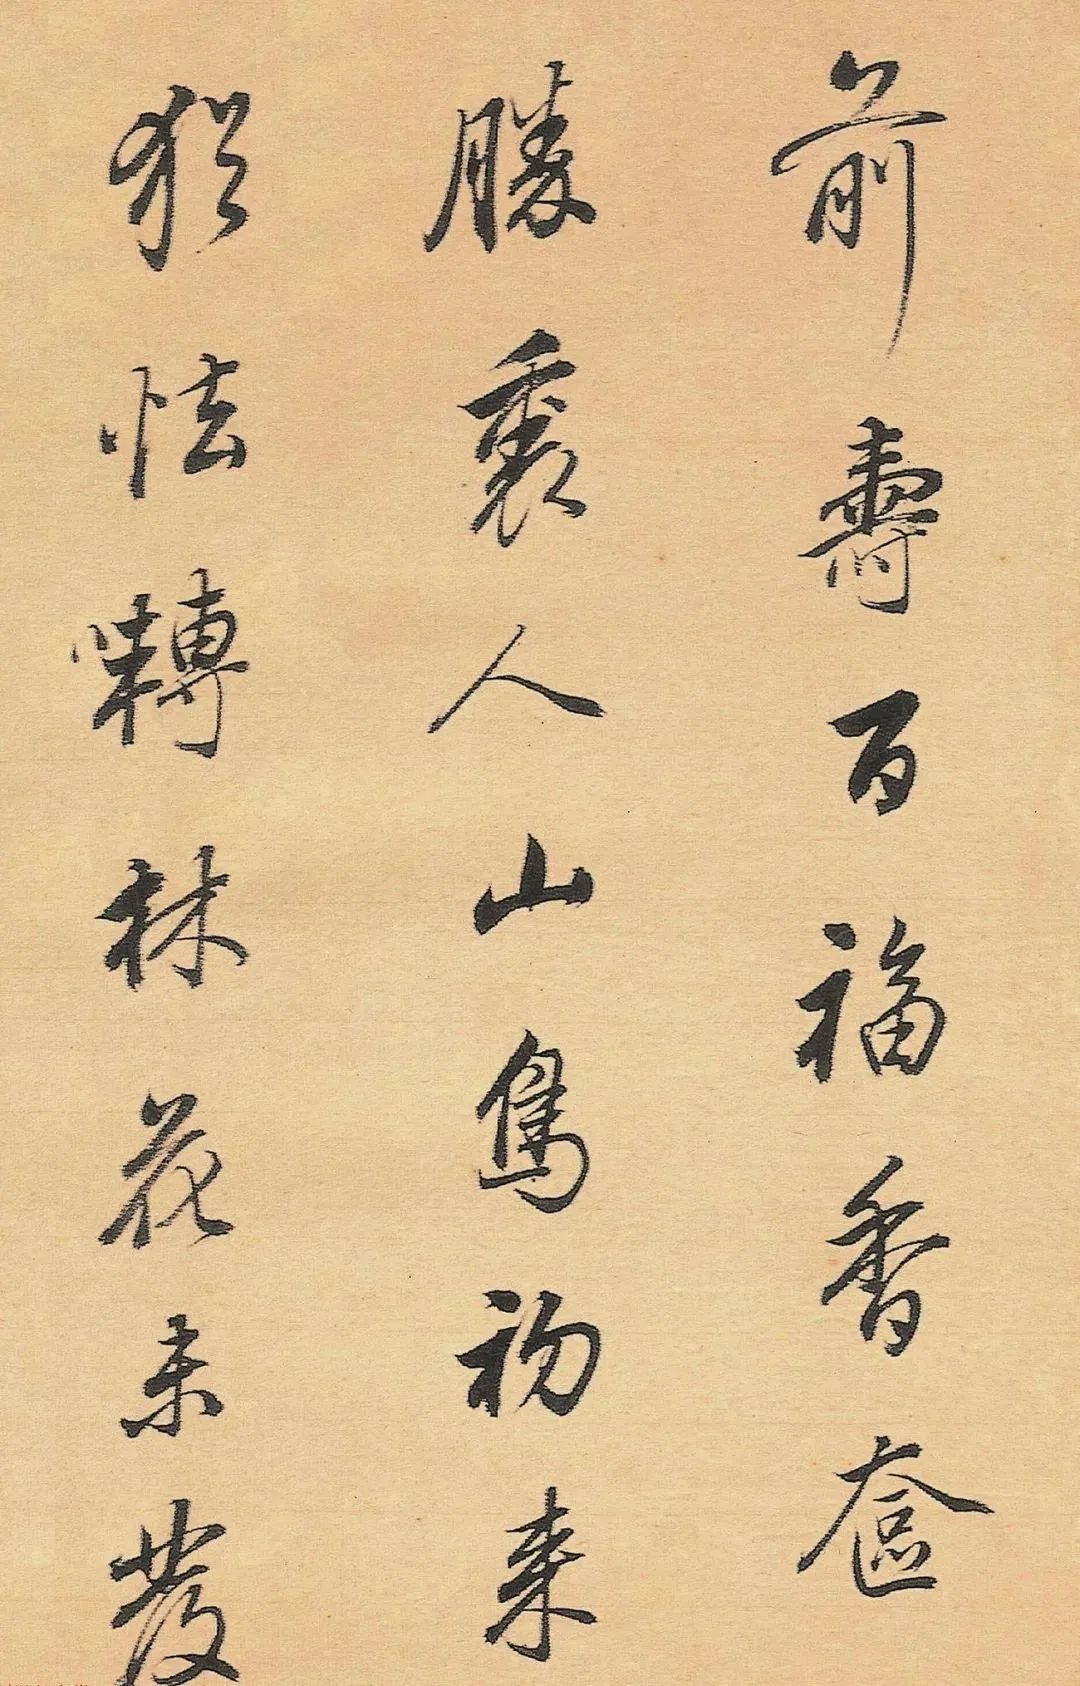 前壽百福香奩
勝裏人山鳥初來
猶怯囀林花未發